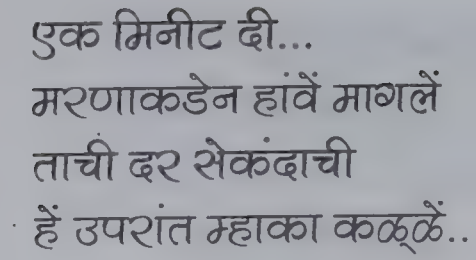 एक मिनीट दी...
मरणाकडेन हांवें मागलें
ताची दर सेकंदाची
हें उपरांत म्हाका कळ्ळें..